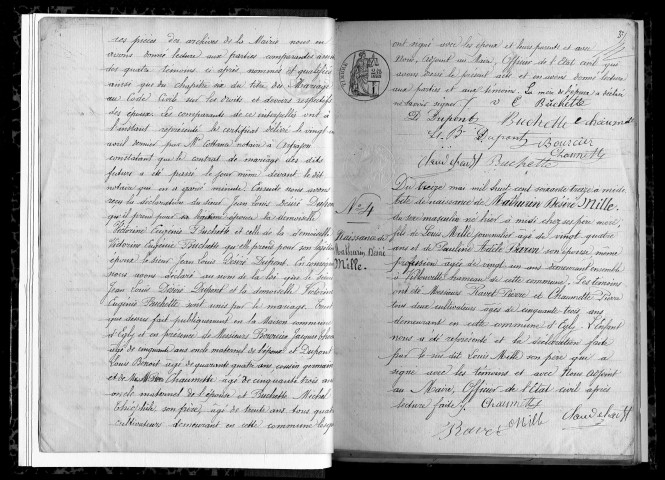 ces pièces des archives de la Mairie nous en
avons donné lecture aux parties comparantes ainsi
des quatre témoins ci après nommés et qualifiés
ainsi que du chapitre six du titre du Mariage
au Code Civil sur les droits et devoirs respectifs
des époux. Les comparants de ce interpellés ont à
l'instant représenté le certificat délivré le vingt
avril dernier par Me notaire à Arpajon
constatant que le contrat de mariage des dits
futurs a été passé le jour même devant le dit
notaire qui en a gardé minute. Ensuite nous avons
reçu la déclaration du sieur Jean Louis Désiré Dupont
qu'il prend pour sa légitime épouse la demoiselle
Victorine Eugénie Buchette et celle de la demoiselle
Victorine Eugénie Buchette qu'elle prend pour son légitime
époux le sieur Jean Louis Désiré Dupont. En conséquence
nous avons déclaré au nom de la loi que le sieur
Jean Louis Désiré Dupont et la demoiselle Victorine
Eugénie Buchette sont unis par le mariage. Tout
que dessus fait publiquement en la Maison commune
d'Egly et en présence de Messieurs Bourcier Jacques
âgé de cinquante ans oncle maternel de l'époux et Dupont
Louis Benoit âgé de quarante quatre ans cousin germain
et de Mr Chaumette âgé de cinquante trois ans
oncle maternel de l'épouse et Buchette Michel
son frère âgé de trente ans tous quatre
cultivateurs demeurant en cette commune lesquels
ont signé avec les époux et leurs parents et avec
Nous, adjoint au Maire, Officier de l'Etat civil qui
avons dressé le présent acte et en avons donné lecture
aux parties et aux témoins. La mère de l'époux a déclaré
ne savoir signer. v E Büchette
D Dupont Buchette
L. B Dupont
Bourcier
Chaumette
Buchette
No 4
Naissance de
Mathurin Désiré
Mille.
Du treize mai mil huit cent soixante treize à midi
Acte de naissance de Mathurin Désiré Mille.
du sexe masculin né hier à midi chez ses père et mère,
fils de Louis Mille journalier âgé de vingt quatre
ans et de Pauline son épouse même
profession âgée de vingt un ans demeurant ensemble
à Villelouvette hameau de cette commune. Les témoins
ont été Messieurs Ravet Pierre et Chaumette Pierre
tous deux cultivateurs âgés de cinquante trois ans
demeurant en cette commune d'Egly. L'enfant
nous a été représenté et la déclaration faite
par le sus dit Louis Mille son père qui a
signé avec les témoins et avec Nous adjoint
au Maire, Officier de l'Etat civil après
lecture faite. Chaumette
Ravet Mille